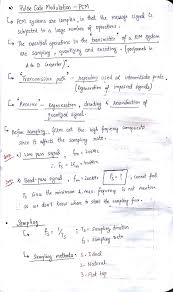 Pulse Code Modulation - PCM
PCM systems are complex, in that the message signal is
subjected to a large number of operations.
The essential operations in the transmitter of a PCM system
are sampling, quantizing and encoding. (performed in
A to D Converter).
"Transmission path" - repeaters used at intermediate points,
(Regeneration of impaired signals)
"Receiver" - Regeneration, decoding &
quantized signal.
Before sampling, filter out the high frequency components
since it affects the sampling rate.
Low pass signal, fm = 20kHz
fs = 2fm =
Band-pass signal, fm = 20kHz, fs = ?, cannot find
the minimum & max. frequency is not mention
so we don't know where to start the sampling from.
Sampling
fs = 1/Ts ; Ts = Sampling duration
fs = sampling rate
Sampling methods : 1. Ideal
2. Natural
3. Flat top